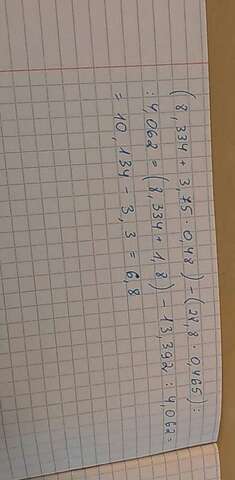 (8,334 + 3,75 · 0,48) - (28,8 · 0,465) :
: 4,062 = (8,334 + 1,8) - 13,392 : 4062 =
= 10,134 - 3,3 = 6,8